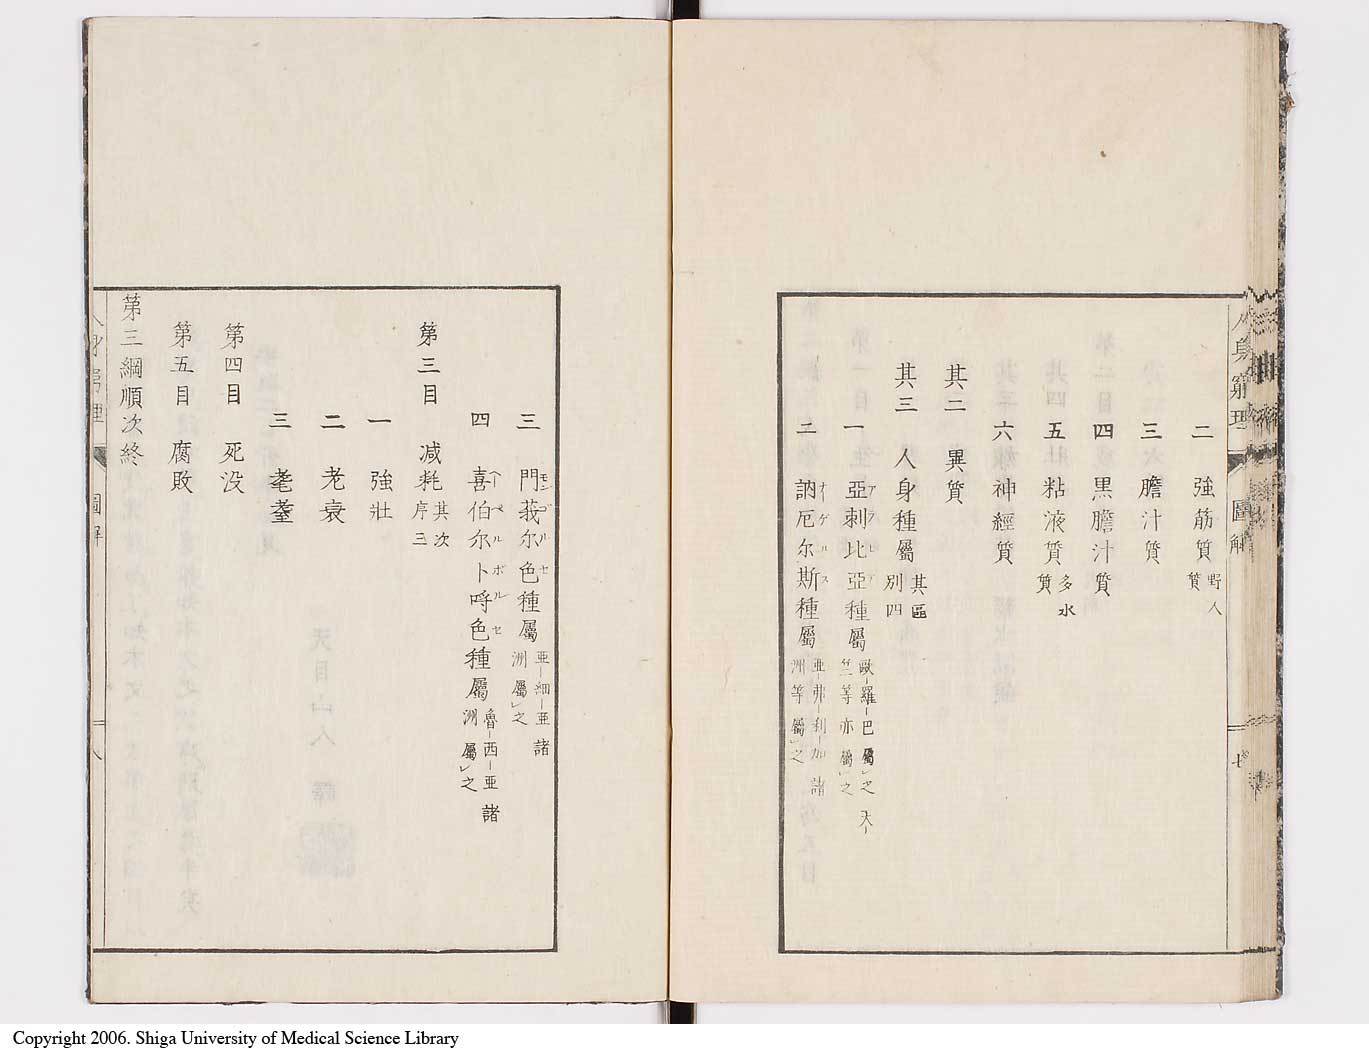 人身窮理 圖解 七
二 強筋質 野人質
三 膽汁質
四 黒膽汁質
五 粘液質 多水質
六 神經質
其二 異質
其三 人身種屬 其區別四
一 亞剌比亞種屬 歐羅巴屬レ之天竺等亦屬レ之
アラビア
二 訥厄尔斯種屬 亜弗利加諸洲等屬レ之
ネーゲルス
三 門莪尔色種屬 亜細亜諸洲屬レ之
モンゴルセ
四 喜伯尔卜呼色種屬 魯西亜諸洲屬レ之
ヘペルボルセ
第三目 減耗 其次序三
一 強壯
二 老衰
三 耄耋
第四目 死没
第五目 腐敗
第三綱順次終
人身窮理 圖解 八
Copyright 2006. Shiga University of Medical Science Library